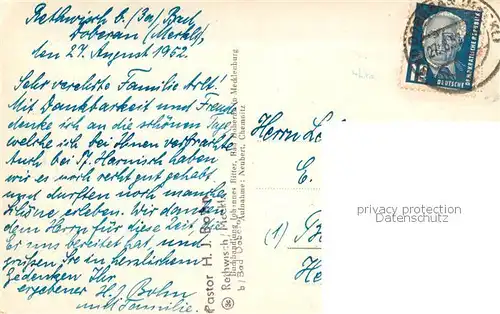 Rethwisch b./Bad
Doberan (Meckl),
den 27. August 1952.
Sehr verehrte Familie
Mit Dankbarkeit und Freude
denke ich an die schönen Tage,
welche ich bei Ihnen verbrachte.
Auch bei Harnisch haben
wir es noch recht gut gehabt
und durften noch manches
Schöne erleben. Wir danken
dem Herrn für diese Zeit, die
Er uns bereitet hat, und
grüßen Sie in herzlichem
Gedenken Ihr
ergebener H.J. Bohn
mit Familie.
Pastor H. J. Bohn
Rethwisch/Meckl.
b/Bad Doberan
Buchhandlung Johannes Ritter, Bad Doberan in Mecklenburg
Aufnahme: Neubert, Chemnitz
Herrn
(1)
DEUTSCHE
DEMOKRATISCHE REPUBLIK
privacy protection
Datenschutz